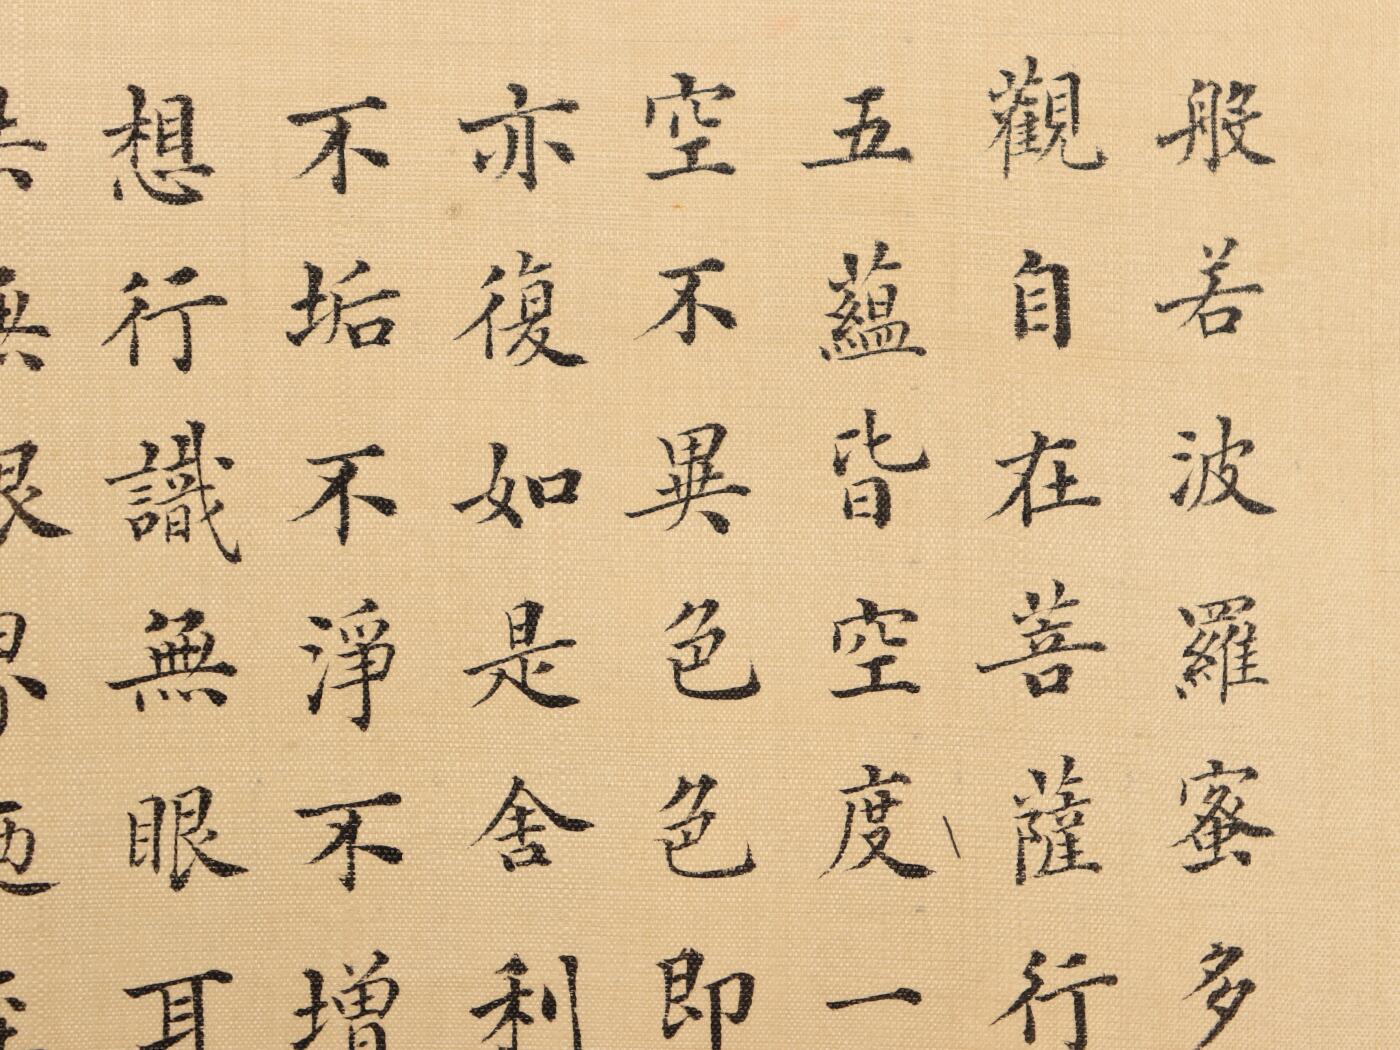 般若波羅蜜多
觀自在菩薩行
五蘊皆空度一
空不異色色即
亦復如是舍利
不垢不淨不增
想行識無眼耳